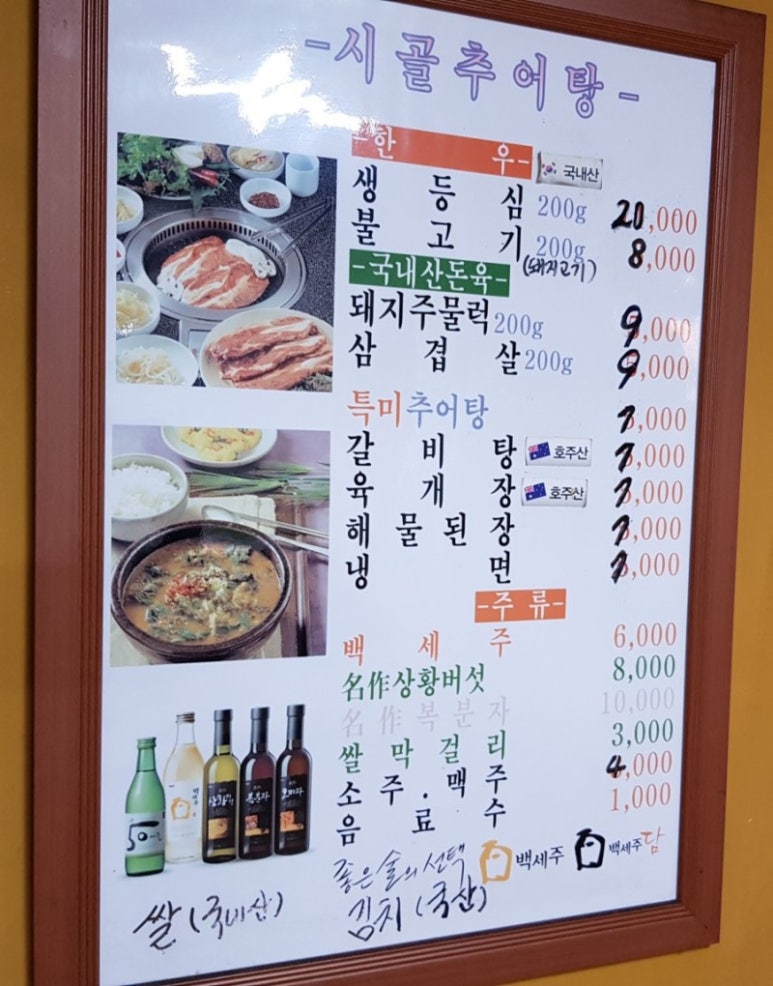 -시골추어탕-
-한우- 국내산
생등심 200g 20,000
불고기 200g 8,000
(돼지고기)
-국내산돈육-
돼지주물럭 200g 9,000
삼겹살 200g 9,000
특미추어탕 7,000
갈비탕 호주산 7,000
육개장 호주산 7,000
해물된장 7,000
냉면 7,000
-주류-
백세주 6,000
名作상황버섯 8,000
名作복분자 10,000
쌀막걸리 3,000
소주.맥주 4,000
음료수 1,000
좋은술의 선택 백세주 백세주담
쌀(국내산) 김치(국산)